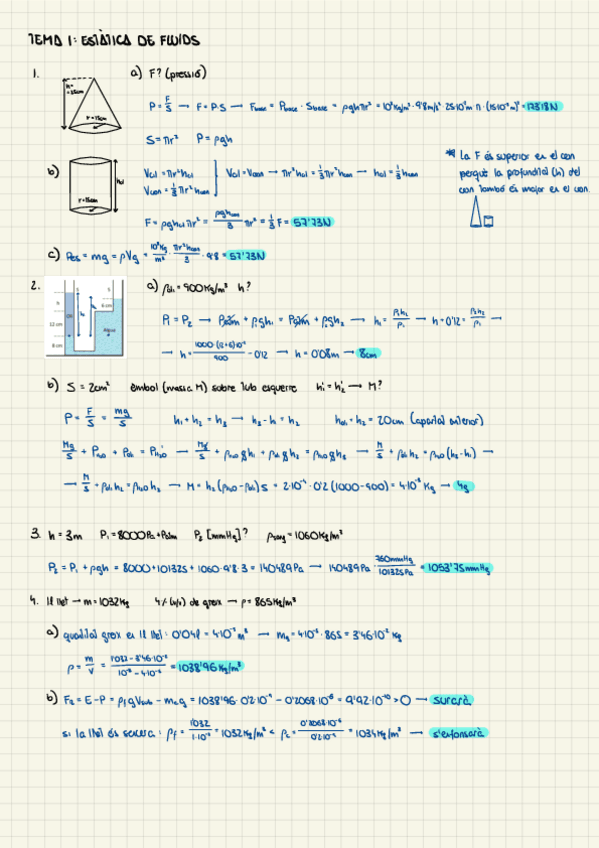 TEMA 1: ESTÀTICA DE FLUIDS
1. a) F? (pressió)
h= 25cm
r=15cm
P = F/S → F = P·S → Fbase = Pbase · Sbase = ρghπr² = 10³kg/m³ · 9'8m/s² · 25·10⁻²m · π · (15·10⁻²m)² = 173'18N
S = πr² P = ρgh
b) Vcil = πr²hcil
Vcon = 1/3 πr²hcon
Vcil = Vcon → πr²hcil = 1/3 πr²hcon → hcil = 1/3 hcon
hcil
r=15cm
F = ρghcil πr² = ρghcon/3 πr² = 1/3 F = 57'73N
* La F és superior en el con
perquè la profunditat (h) del
con també és major en el con.
c) Pes = mg = ρVg = 10³kg/m³ · πr²hcon/3 · 9'8 = 57'73N
2. a) ρoli = 900kg/m³ h?
6 cm
12 cm
8 cm
Aigua
P₁ = P₂ → Patm + ρ₁gh₁ = Patm + ρ₂gh₂ → h₁ = ρ₂h₂/ρ₁ → h + 0'12 = ρ₂h₂/ρ₁ →
→ h = 1000·(12+6)·10⁻²/900 - 0'12 → h = 0'08m → 8cm
b) S = 2cm² èmbol (massa M) sobre tub esquerre h₁' = h₂' → M?
P = F/S = mg/S h₁ + h₂ = h₃ → h₃ - h₁ = h₂ holi = h₂ = 20cm (apartat anterior)
Mg/S + PH₂O + Poli = PH₂O' → Mg/S + ρH₂O gh₁ + ρoli gh₂ = ρH₂O gh₃ → M/S + ρoli h₂ = ρH₂O (h₃-h₁) →
→ M/S + ρoli h₂ = ρH₂O h₂ → M = h₂(ρH₂O - ρoli)S = 2·10⁻⁴ · 0'2 (1000-900) = 4·10⁻³ Kg → 4g
3. h = 3m P₁ = 8000Pa + Patm P₂ [mmHg]? ρsang = 1060kg/m³
P₂ = P₁ + ρgh = 8000 + 101325 + 1060·9'8·3 = 140489Pa → 140489Pa · 760mmHg/101325Pa = 1053'75mmHg
4. 1l llet → m = 1032kg 4% (v/v) de greix → ρ = 865kg/m³
a) quantitat greix en 1l llet: 0'04l = 4·10⁻⁵ m³ → mg = 4·10⁻⁵ · 865 = 3'46·10⁻² kg
ρ = m/V = 1'032 - 3'46·10⁻²/10⁻³ - 4·10⁻⁵ = 1038'96kg/m³
b) FR = E - P = ρf gVsub - mc g = 1038'96 · 0'2·10⁻⁹ - 0'2068·10⁻⁶ = 9'92·10⁻¹⁰ > 0 → surarà
si la llet és sencera: ρf = 1'032/1·10⁻³ = 1032kg/m³ < ρc = 0'2068·10⁻⁶/0'2·10⁻⁹ = 1034kg/m³ → s'enfonsarà